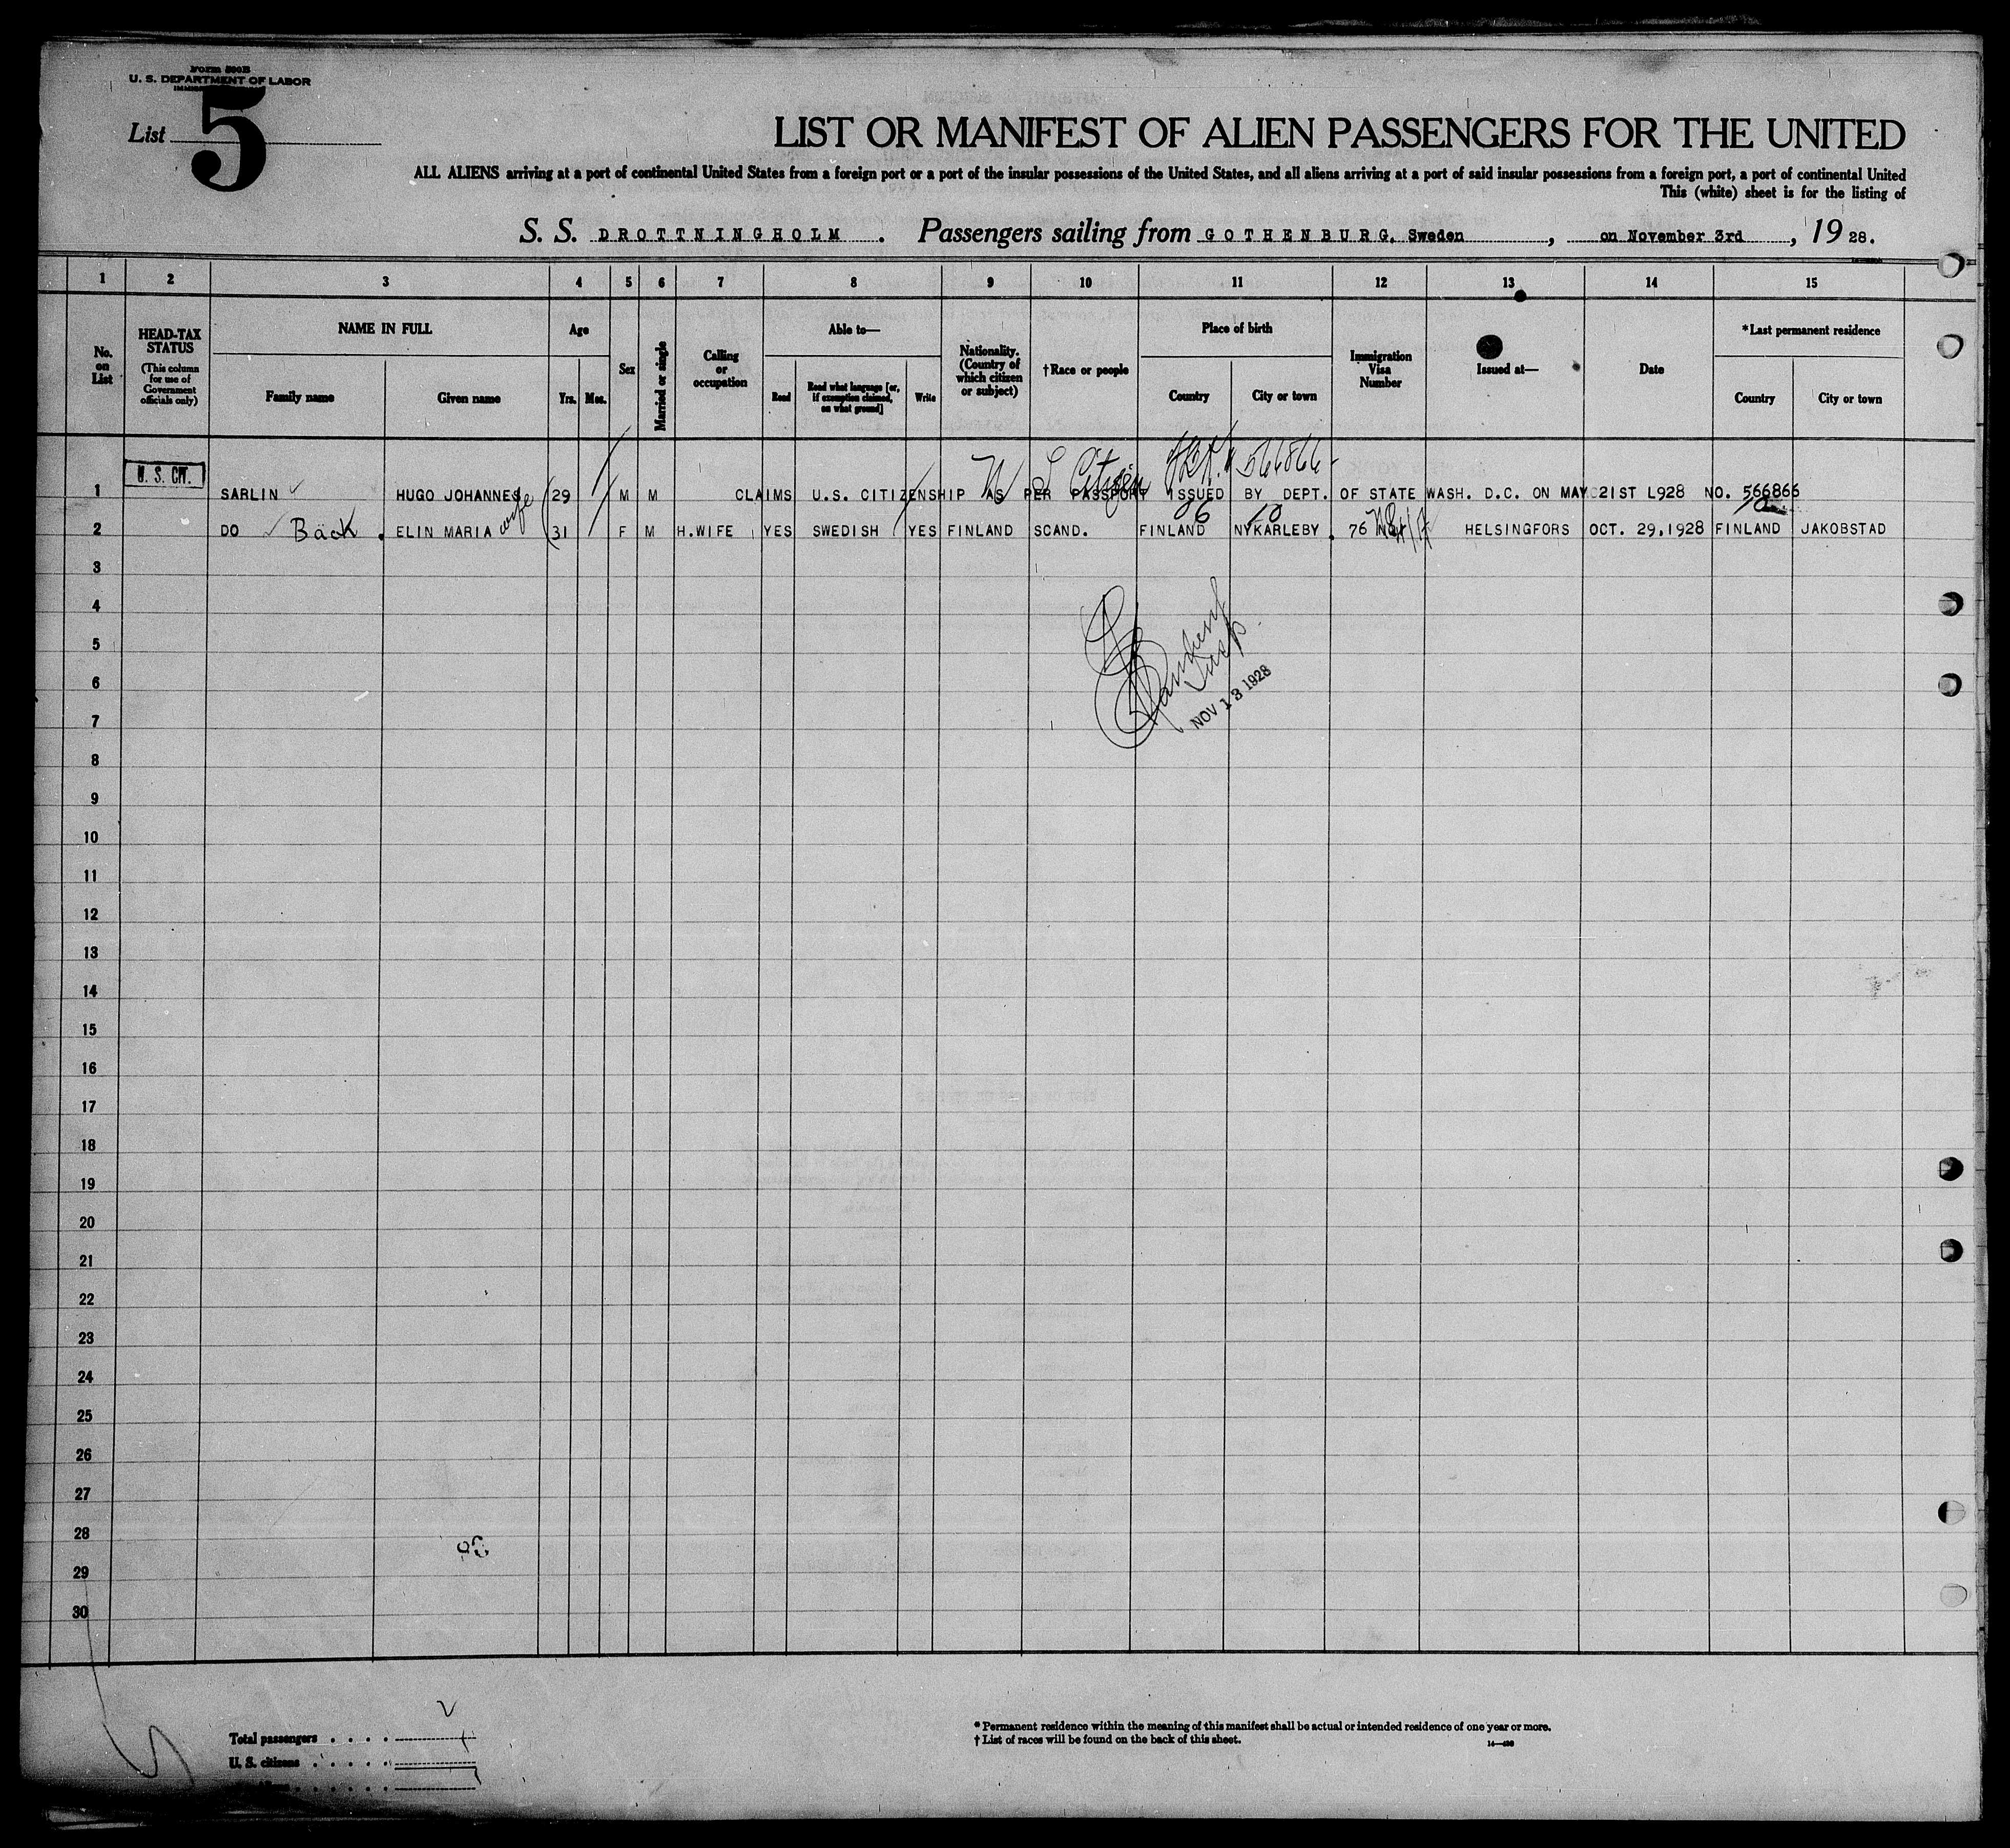 Form 500B
U. S. DEPARTMENT OF LABOR
List 5
LIST OR MANIFEST OF ALIEN PASSENGERS FOR THE UNITED
ALL ALIENS arriving at a port of continental United States from a foreign port or a port of the insular possessions of the United States, and all aliens arriving at a port of said insular possessions from a foreign port, a port of continental United
This (white) sheet is for the listing of
S. S. DROTTNINGHOLM. Passengers sailing from GOTHENBURG, Sweden, on November 3rd, 1928.
1 2 3 4 5 6 7 8 9 10 11 12 13 14 15
No. on List
HEAD-TAX STATUS
(This column for use of Government officials only)
NAME IN FULL
Family name Given name
Age
Yrs. Mos.
Sex
Married or single
Calling or occupation
Able to—
Read
Read what language [or, if exemption claimed, on what ground]
Write
Nationality. (Country of which citizen or subject)
†Race or people
Place of birth
Country City or town
Immigration Visa Number
Issued at—
Date
*Last permanent residence
Country City or town
U S Citizen 566866
1 U. S. CIT. SARLIN HUGO JOHANNES 29 M M CLAIMS U.S. CITIZENSHIP AS PER PASSPORT ISSUED BY DEPT. OF STATE WASH. D.C. ON MAY 21ST L928 NO. 566866
86 10
2 DO Bäck. ELIN MARIA wife 31 F M H.WIFE YES SWEDISH YES FINLAND SCAND. FINLAND NYKARLEBY. 76 HELSINGFORS OCT. 29,1928 FINLAND JAKOBSTAD
3
4
5
Insp.
6
NOV 13 1928
7
8
9
10
11
12
13
14
15
16
17
18
19
20
21
22
23
24
25
26
27
28
29
30
2
Total passengers . . . .
U. S. citizens . . . . .
* Permanent residence within the meaning of this manifest shall be actual or intended residence of one year or more.
† List of races will be found on the back of this sheet.